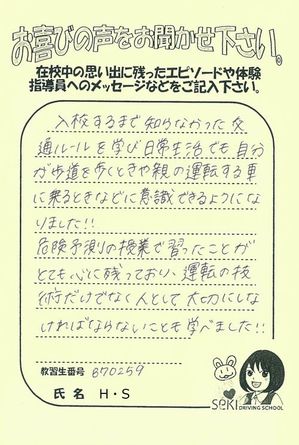 お喜びの声をお聞かせ下さい。
在校中の思い出に残ったエピソードや体験
指導員へのメッセージなどをご記入下さい。
入校するまで知らなかった交
通ルールを学び日常生活でも自分
が歩道を歩くときや親の運転する車
に乗るときなどに意識できるようにな
りました!!
危険予測の授業で習ったことが
とても心に残っており、運転の技
術だけでなく人として大切にしな
ければならないことも学べました!!
教習生番号 870259
氏名 H・S
SEKI DRIVING SCHOOL